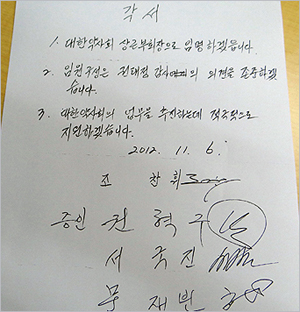 각서
1. 대한약사회 상근부회장으로 임명하겠습니다.
2. 임원구성은 권태정 감사에게의 의견을 존중하겠
습니다.
3. 대한약사회의 업무를 추진하는데 적극적으로
지원하겠습니다.
2012. 11. 6.
조찬휘
증인 권혁구
서국진
문재빈